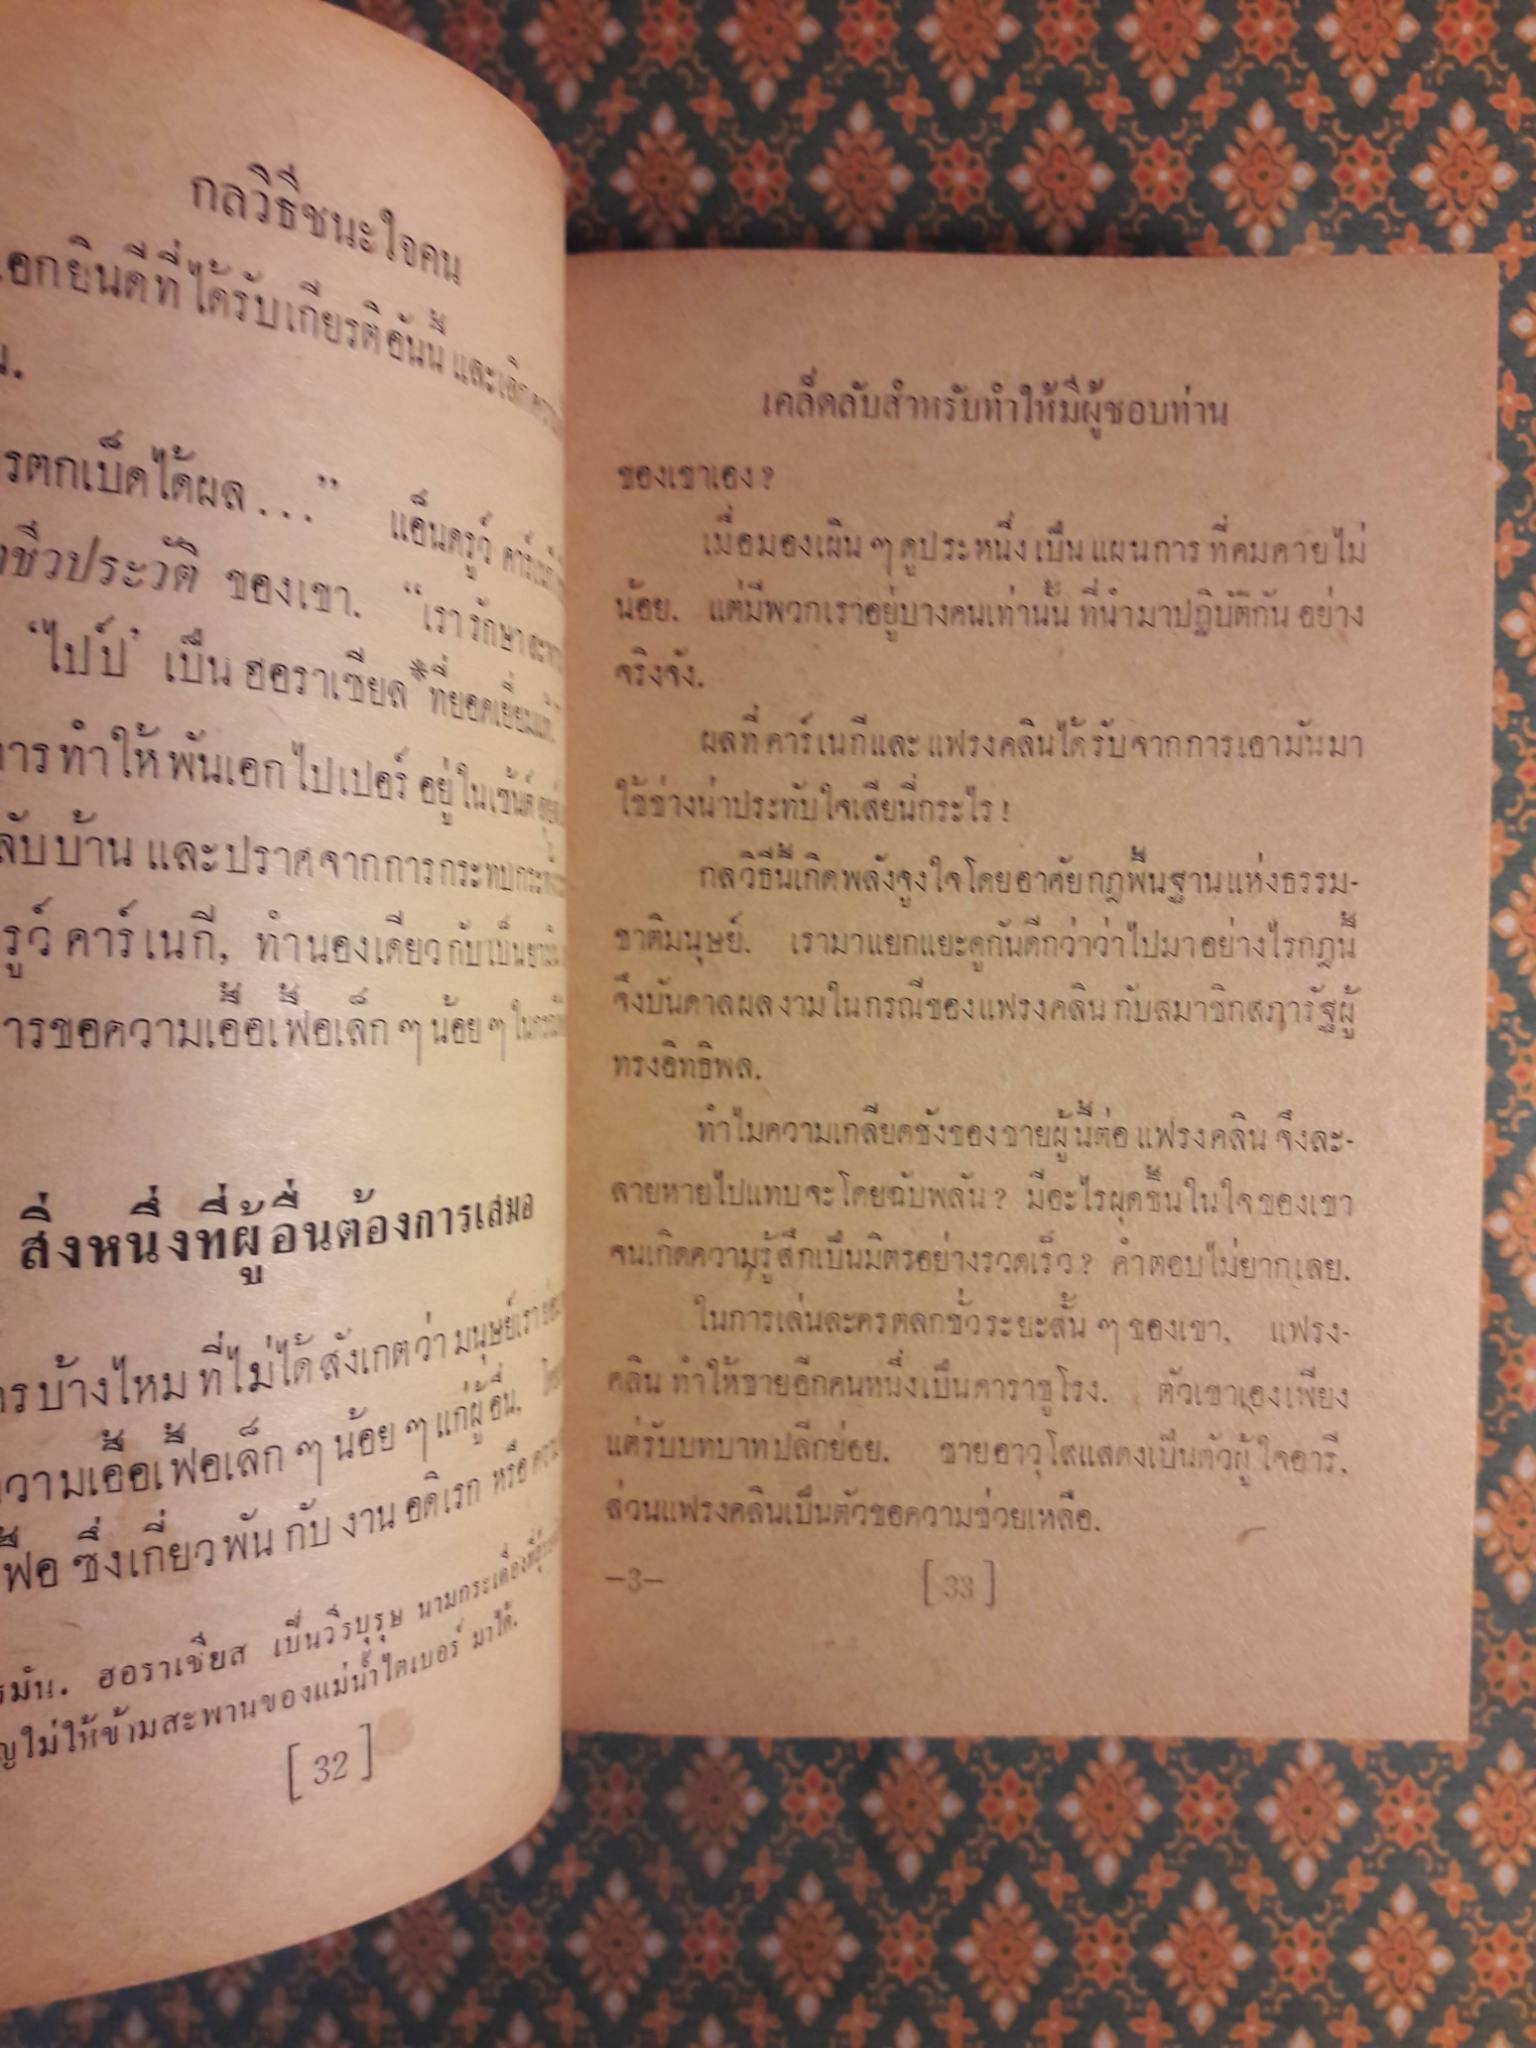 กลวิธีชนะใจคน
เอกยินดีที่ได้รับเกียรติอันนั้น และเลิก
น.
รตกเบ็ดได้ผล . . .” แอ็นดรูว์ คาร์เนกี
ชีวประวัติ ของเขา. “เรารักษา
‘ไปป์’ เป็น ฮอราเซียส*ที่ยอดเยี่ยม
การทำให้พันเอกไปเปอร์ อยู่ในเซ้นต์
ลับบ้าน และปราศจากการกระทบ
รูว์ คาร์เนกี, ทำนองเดียวกับเป็น
การขอความเอื้อเฟื้อเล็ก ๆ น้อย ๆ ใน
สิ่งหนึ่งที่ผู้อื่นต้องการเสมอ
บ้างไหม ที่ไม่ได้สังเกตว่า มนุษย์เรา
ความเอื้อเฟื้อเล็ก ๆ น้อย ๆ แก่ผู้อื่น,
เฟื้อ ซึ่งเกี่ยวพัน กับ งาน อดิเรก หรือ
รมัน. ฮอราเชียส เป็นวีรบุรุษ นามกระเดื่อง
ญไม่ให้ข้ามสะพานของแม่น้ำไตเบอร์ มาได้.
[ 32 ]
เคล็ดลับสำหรับทำให้มีผู้ชอบท่าน
ของเขาเอง ?
เมื่อมองเผิน ๆ ดูประหนึ่ง เป็น แผนการ ที่คมคายไม่
น้อย. แต่มีพวกเราอยู่บางคนเท่านั้น ที่นำมาปฏิบัติกัน อย่าง
จริงจัง.
ผลที่ คาร์เนกีและ แฟรงคลินได้รับจากการเอามันมา
ใช้ช่างน่าประทับใจเสียนี่กระไร !
กลวิธีนี้เกิดพลังจูงใจโดยอาศัยกฎพื้นฐานแห่งธรรม-
ชาติมนุษย์. เรามาแยกแยะดูกันดีกว่าว่าไปมาอย่างไรกฎนี้
จึงบันดาลผลงามในกรณีของแฟรงคลิน กับสมาชิกสภารัฐผู้
ทรงอิทธิพล.
ทำไมความเกลียดชังของ ชายผู้นี้ต่อ แฟรงคลิน จึงละ-
ลายหายไปแทบจะโดยฉับพลัน ? มีอะไรผุดขึ้นในใจของเขา
จนเกิดความรู้สึกเป็นมิตรอย่างรวดเร็ว ? คำตอบไม่ยากเลย.
ในการเล่นละครตลกชั่วระยะสั้น ๆ ของเขา, แฟรง-
คลิน ทำให้ชายอีกคนหนึ่งเป็นดาราชูโรง. ตัวเขาเองเพียง
แต่รับบทบาทปลีกย่อย. ชายอาวุโสแสดงเป็นตัวผู้ใจอารี,
ส่วนแฟรงคลินเป็นตัวขอความช่วยเหลือ.
—3—
[ 33 ]